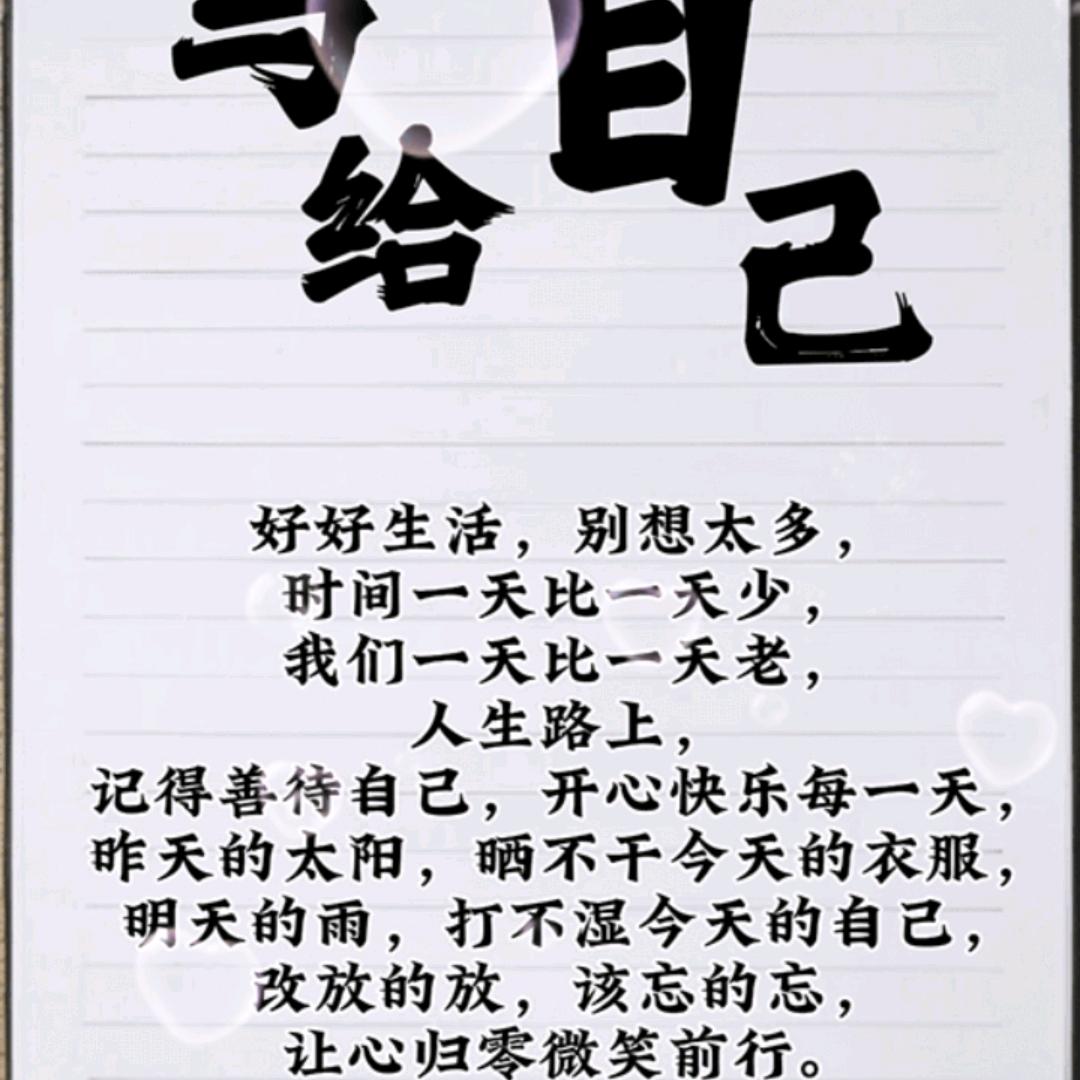 写给自己
好好生活，别想太多，
时间一天比一天少，
我们一天比一天老，
人生路上，
记得善待自己，开心快乐每一天，
昨天的太阳，晒不干今天的衣服，
明天的雨，打不湿今天的自己，
改放的放，该忘的忘，
让心归零微笑前行。